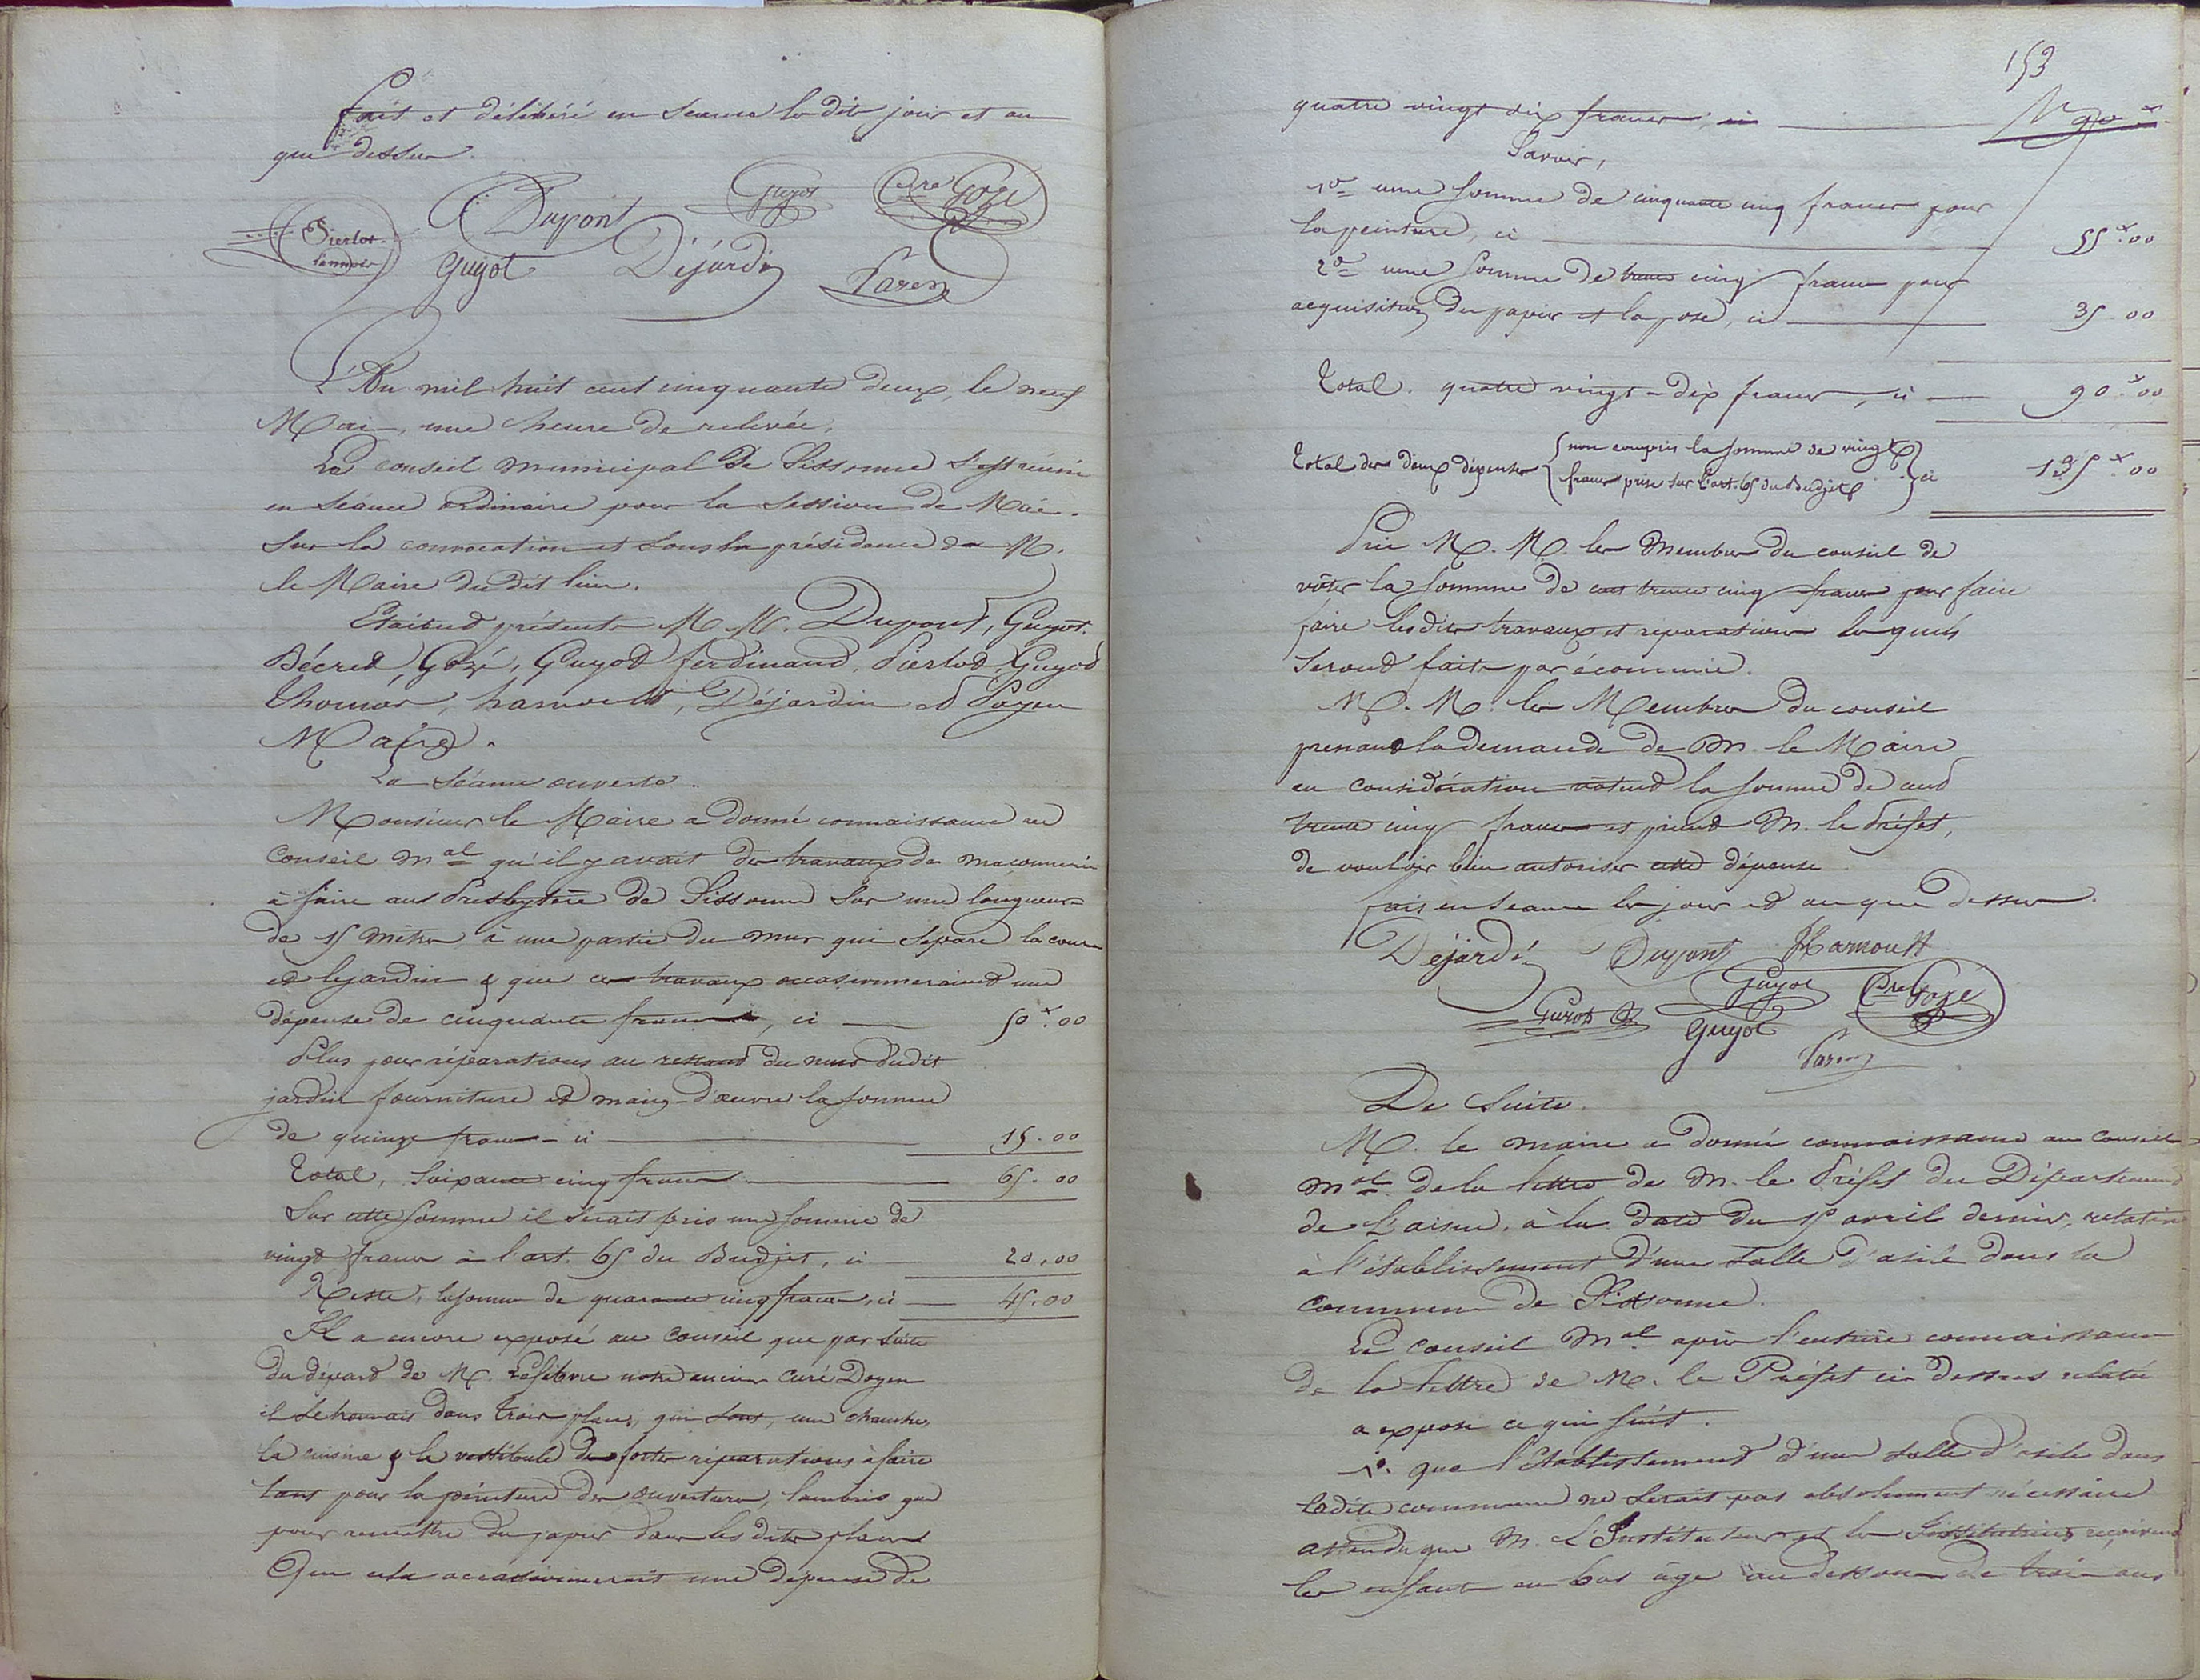 fait et délibéré en séance lesdits jour et an
que dessus.
Pierlot
Lennoir
Dupont
Guyot
Cdre Gozé
Guyot
Déjardin
Payen
L'An mil huit cent cinquante deux, le neuf
Mai, une heure de relevée,
Le conseil municipal de Sissonne s'est réuni
en séance ordinaire pour la session de Mai.
Sur la convocation et sous la présidence de M.
le Maire dudit lieu.
Etaient présents M.M. Dupont, Guyot.
Décret, Gozé, Guyot ferdinand, Pierlot, Guyot
Thomas, harnoult, Déjardin et Payen
Maire.
La Séance ouverte.
Monsieur le Maire a donné connaissance au
Conseil Mal qu'il y avait des travaux de maconnerie
à faire aux Presbytère de Sissonne sur une longueur
de 15 mètres à une partie du mur qui sépare la cour
et le jardin & que ces travaux occasionneraient une
dépense de cinquante francs, ci 50 f. 00
Plus pour réparations au restant du mur dudit
jardin fourniture et main-d'œuvre la somme
de quinze francs - ci 15. 00
Total, soixante cinq francs 65. 00
Sur cette somme il serait pris une somme de
vingt francs à l'art. 65 du Budjet, ci 20. 00
Reste, la somme de quarante cinq francs, ci 45. 00
Il a encore exposé au Conseil que par suite
du départ de M. Lefebvre notre ancien curé Doyen
il se trouvait dans trois places, qui sont, une chambre,
la cuisine & le vestibule de fortes réparations à faire
tant pour la peinture des ouvertures, lambris que
pour remettre du papier dans lesdites places
Que cela occasionnerait une dépense de
153
quatre vingt dix francs, ci 90 f
Savoir,
1° une somme de cinquante cinq francs pour
la peinture, ci 55 f. 00
2° une somme de trente cinq francs pour
acquisition du papier et la pose, ci 35. 00
Total. quatre vingt-dix francs, ci 90 f. 00
Total des deux dépenses (non compris la somme de vingt
francs prise sur l'art. 65 du Budjet) ci 135 f. 00
Prie M.M. les Membres du conseil de
voter la somme de cent trente cinq francs pour faire
faire lesdits travaux et réparations lesquels
seront faits par économie.
M.M. les Membres du conseil
prenant la demande de M. le Maire
en considération votent la somme de cent
trente cinq francs et prient M. le Préfet,
de vouloir bien autoriser cette dépense
fait en séance les jour et an que dessus.
Déjardin
Dupont
Harnoult
Guyot
Guyot
Cdre Gozé
Guyot
Payen
De Suite.
M. le maire a donné connaissance au conseil
mal de la lettre de M. le Préfet du Département
de L'aisne, à la date du 15 avril dernier, relative
à l'établissement d'une salle d'asile dans la
commune de Sissonne.
Le Conseil Mal après l'entière connaissance
de la lettre de M. le Préfet ci dessus relatée
a exposé ce qui suit.
1°. que l'établissement d'une salle d'asile dans
ladite commune ne serait pas absolument nécessaire
attendu que M. L'Instituteur et les Institutrices reçoivent
les enfants en bas âge au dessous de trois ans